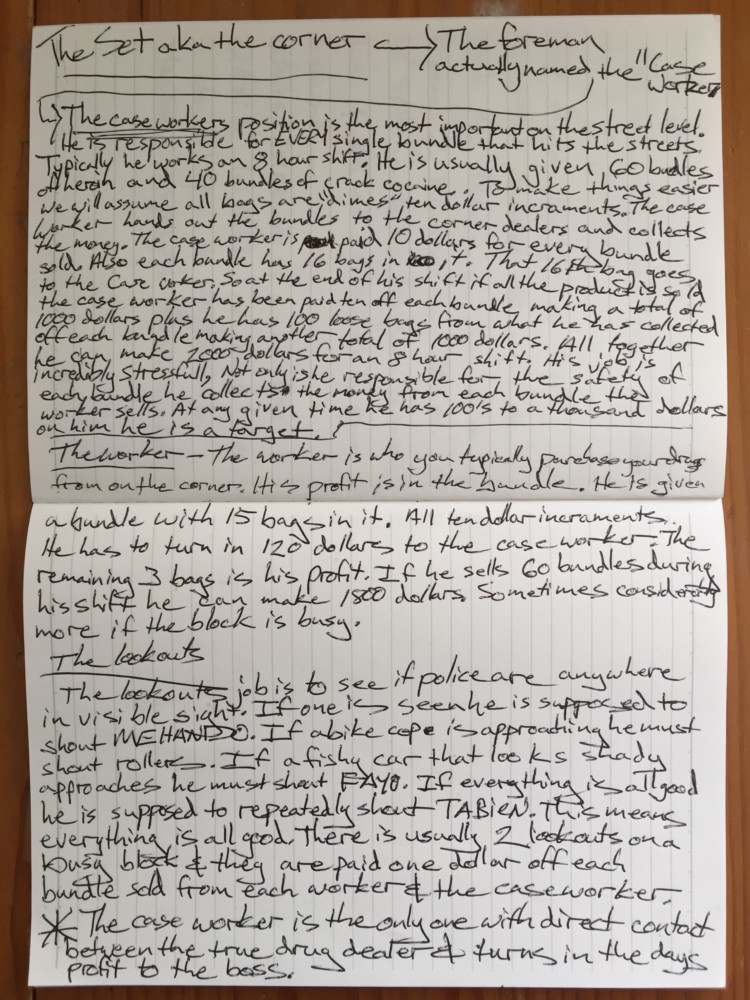 The Set aka the corner → The foreman
actually named the "Case
worker"
↳ The case workers position is the most important on the street level.
He is responsible for EVERY single bundle that hits the streets.
Typically he works an 8 hour shift. He is usually given, 60 bundles
of heroin and 40 bundles of crack cocaine. To make things easier
we will assume all bags are "dimes" ten dollar incraments. The case
worker hands out the bundles to the corner dealers and collects
the money. The case worker is paid 10 dollars for every bundle
sold. Also each bundle has 16 bags in it. That 16th bag goes
to the Case worker. So at the end of his shift if all the product is sold
the case worker has been paid ten off each bundle, making a total of
1000 dollars plus he has 100 loose bags from what he has collected
off each bundle making another total of 1000 dollars. All together
he can make 2000 dollars for an 8 hour shift. His job is
incredibly stressful, Not only is he responsible for the safety of
each bundle he collects the money from each bundle the
worker sells. At any given time he has 100's to a thousand dollars
on him he is a target.
The worker – The worker is who you typically purchase your drugs
from on the corner. His profit is in the bundle. He is given
a bundle with 15 bags in it. All ten dollar incraments.
He has to turn in 120 dollars to the case worker. The
remaining 3 bags is his profit. If he sells 60 bundles during
his shift he can make 1800 dollars. Sometimes considerably
more if the block is busy.
The lookouts
The lookouts job is to see if police are anywhere
in visible sight. If one is seen he is supposed to
shout MEHANDO. If a bike cope is approaching he must
shout rollers. If a fishy car that looks shady
approaches he must shout FAYO. If everything is all good
he is supposed to repeatedly shout TABIEN. This means
everything is all good. There is usually 2 lookouts on a
busy block & they are paid one dollar off each
bundle sold from each worker & the case worker.
* The case worker is the only one with direct contact
between the true drug dealer & turns in the days
profit to the boss.